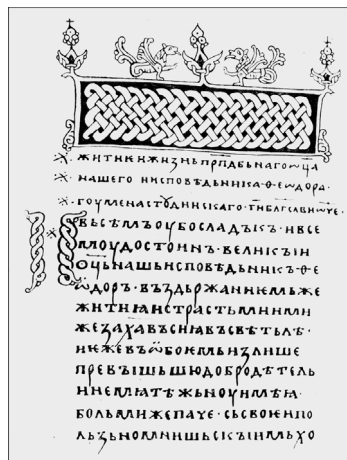 житиѥ и жизнь прпдбьнаго ѡца
нашего исповѣдьника ѳеѡдора·
гоумена студиискаго· ги блгслви ѡче·
Вьсѣмъ оубо сладъкъ· и все
моу достоинъ· великъіи
оць нашь исповѣдьникъ ѳе
ѡдоръ· въздьржаниѥмь же
житиꙗ и страстьми ими
же за ха въсиꙗ въ свѣтьлѣ·
не же въ ѡбоѥмь излише
превъішьшю добродѣтель
и немѧтежьноу имѣꙗ·
больми же паче· сь своѥи по
льзьно мнишьскъіимь хо